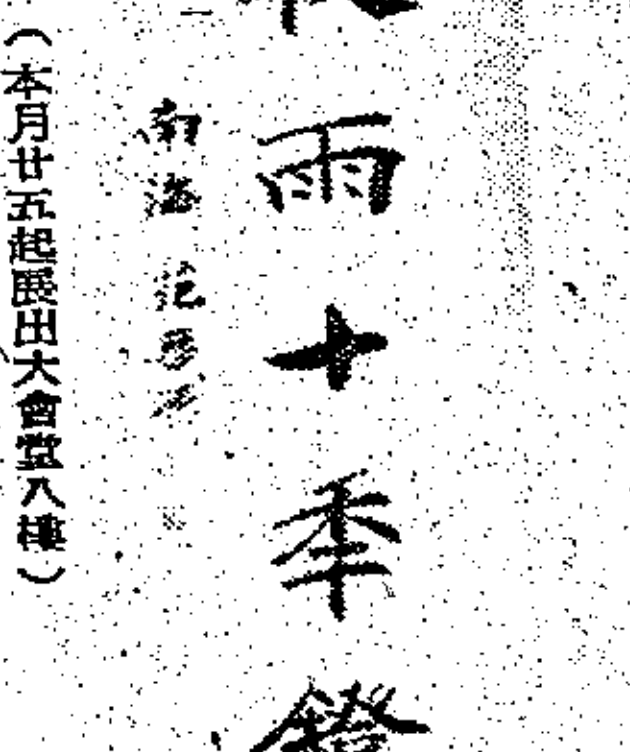 雨十秊鐙
南海
（本月廿五起展出大會堂八樓）